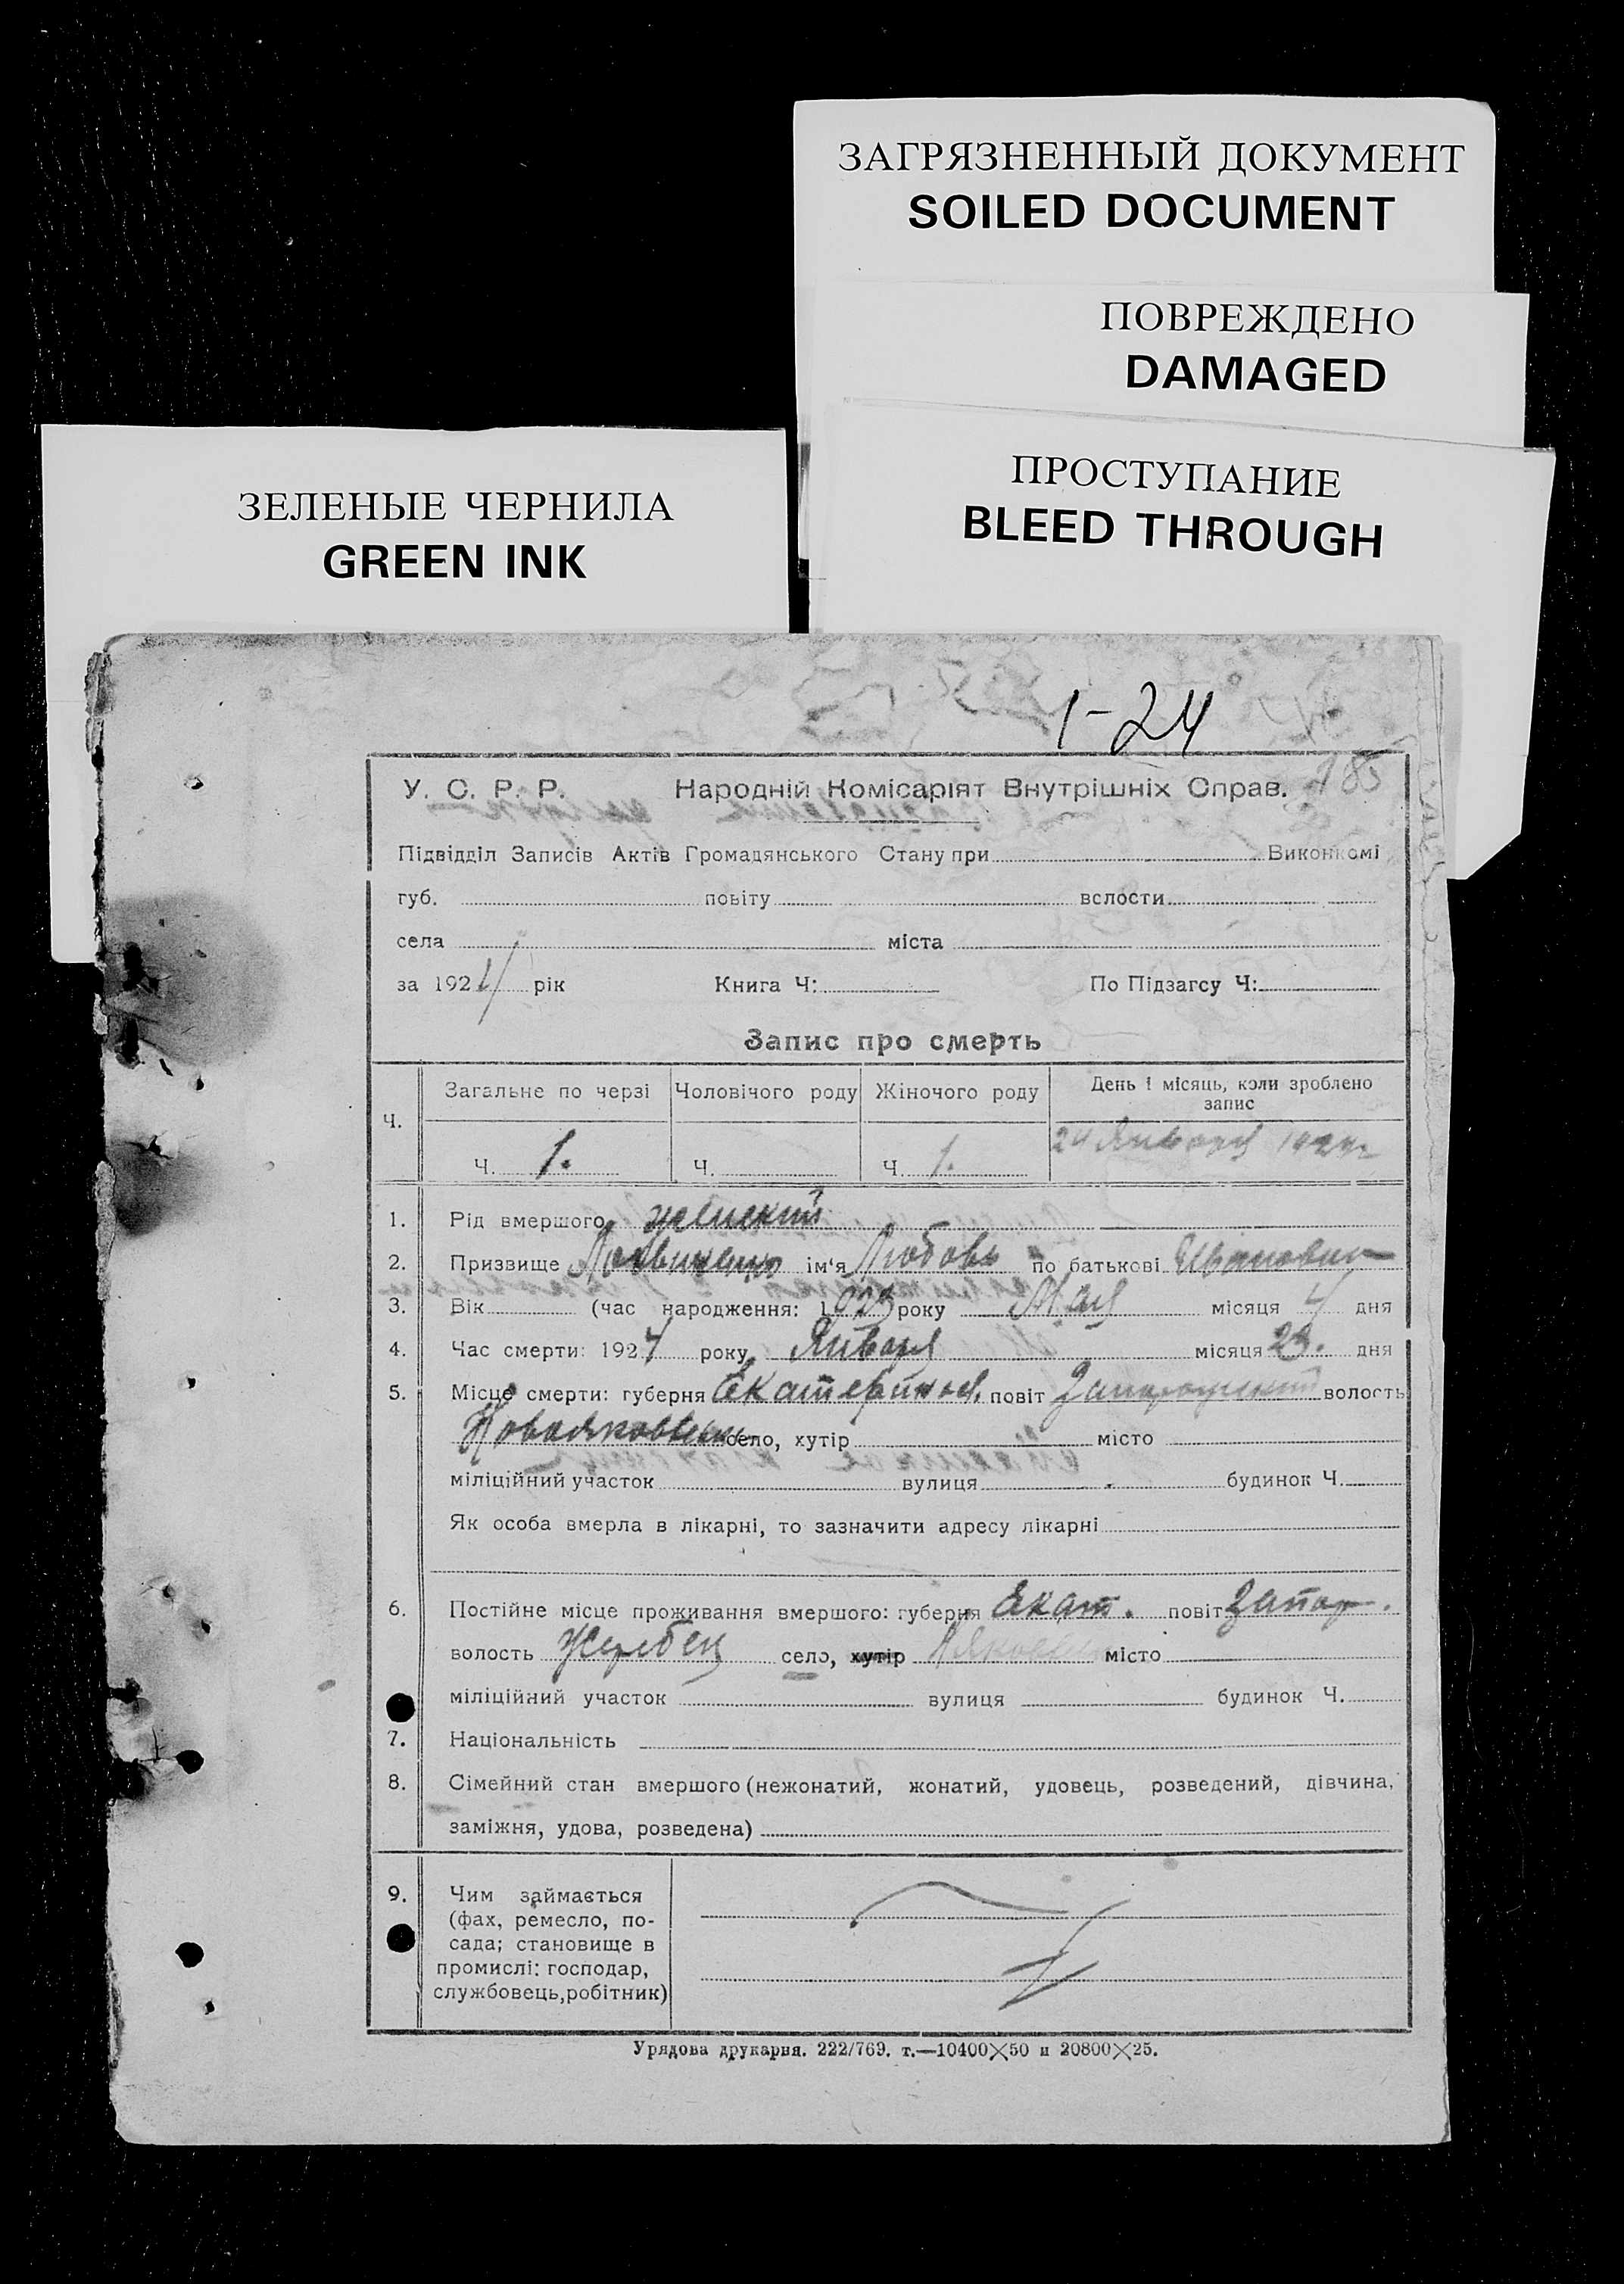 ЗАГРЯЗНЕННЫЙ ДОКУМЕНТ
SOILED DOCUMENT
ПОВРЕЖДЕНО
DAMAGED
ПРОСТУПАНИЕ
BLEED THROUGH
ЗЕЛЕНЫЕ ЧЕРНИЛА
GREEN INK
1-24
185
У. С. Р. Р. Народній Комісаріят Внутрішніх Справ.
Підвідділ Записів Актів Громадянського Стану при Виконкомі
губ. повіту волости
села міста
за 1924 рік Книга Ч: По Підзагсу Ч:
Запис про смерть
Ч. Загальне по черзі Чоловічого роду Жіночого роду День і місяць, коли зроблено запис
Ч. 1. Ч. Ч. 1. 24 Января 1924 г
1. Рід вмершого женский
2. Призвище ім'я Любовь по батькові Ивановна
3. Вік (час народження: 1923 року Мая місяця 4 дня
4. Час смерти: 1924 року Января місяця 23. дня
5. Місце смерти: губерня Екатериносл. повіт Запорожский волость
село, хутір місто
міліційний участок вулиця будинок Ч.
Як особа вмерла в лікарні, то зазначити адресу лікарні
6. Постійне місце проживання вмершого: губерня Екат. повіт Запор.
волость Жеребец село, хутір місто
міліційний участок вулиця будинок Ч.
7. Національність
8. Сімейний стан вмершого (нежонатий, жонатий, удовець, розведений, дівчина,
заміжня, удова, розведена)
9. Чим займається
(фах, ремесло, по-
сада; становище в
промислі: господар,
службовець, робітник)
Урядова друкарня. 222/769. т.—10400×50 и 20800×25.